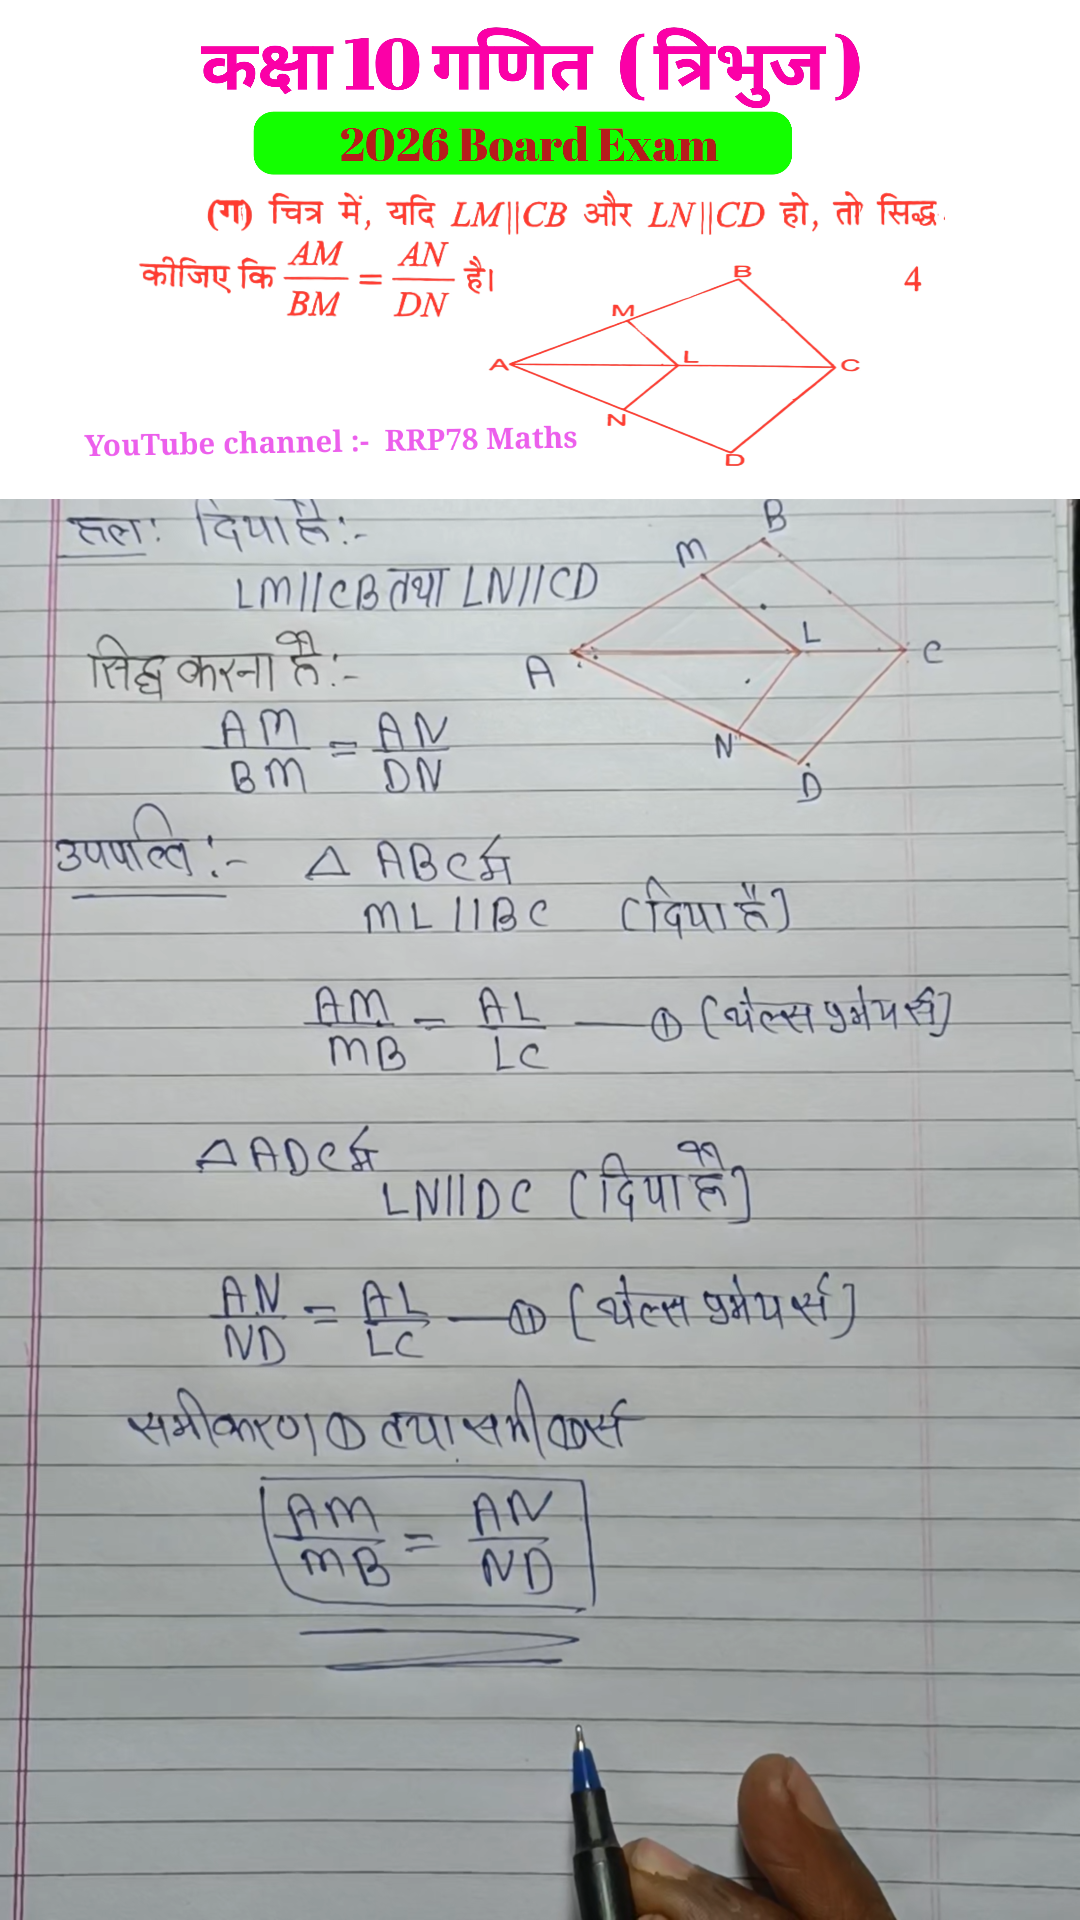 कक्षा 10 गणित ( त्रिभुज )
2026 Board Exam
(ग) चित्र में, यदि LM||CB और LN||CD हो, तो सिद्ध
कीजिए कि AM/BM = AN/DN है। 4
B
M
A L C
N
D
YouTube channel :- RRP78 Maths
हल: दिया है:-
LM||CB तथा LN||CD
सिद्ध करना है:-
AM/BM = AN/DN
B
M
L
A C
N
D
उपपत्ति :- △ ABC में
ML||BC (दिया है)
AM/MB = AL/LC — ① (थेल्स प्रमेय से)
△ADC में
LN||DC (दिया है)
AN/ND = AL/LC — ⑪ (थेल्स प्रमेय से)
समीकरण ① तथा समी ⑪ से
AM/MB = AN/ND